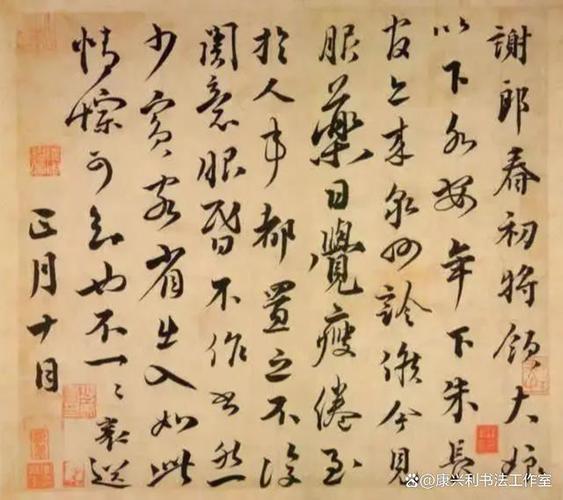 謝郎春初將領大娘
以下各安年下朱長
官亦來泉州診候今見
服藥日覺瘦倦至
於人事都置之不復
關意眼昏不作書然
少賓客省出入如此
情悰可知也不一一襄送
正月十日
@康兴利书法工作室